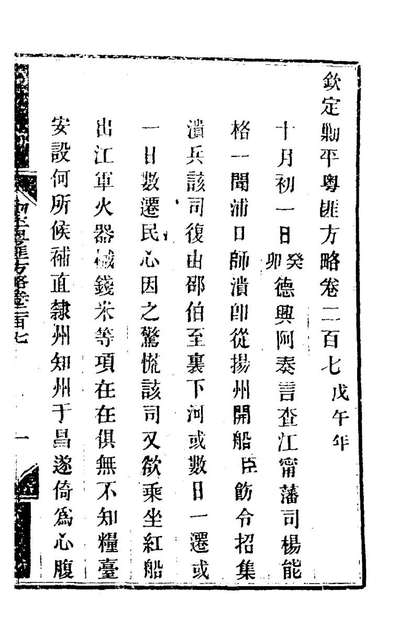 欽定勦平粤匪方略卷二百七戊午年
十月初一日癸卯德興阿奏言查江甯藩司楊能
格一聞浦口師潰卽從揚州開船臣飭令招集
潰兵該司復由邵伯至裏下河或數日一遷或
一日數遷民心因之驚慌該司又欲乘坐紅船
出江軍火器械錢米等項在在俱無不知糧臺
安設何所候補直隸州知州于昌遂倚爲心腹
方略卷二百七
一